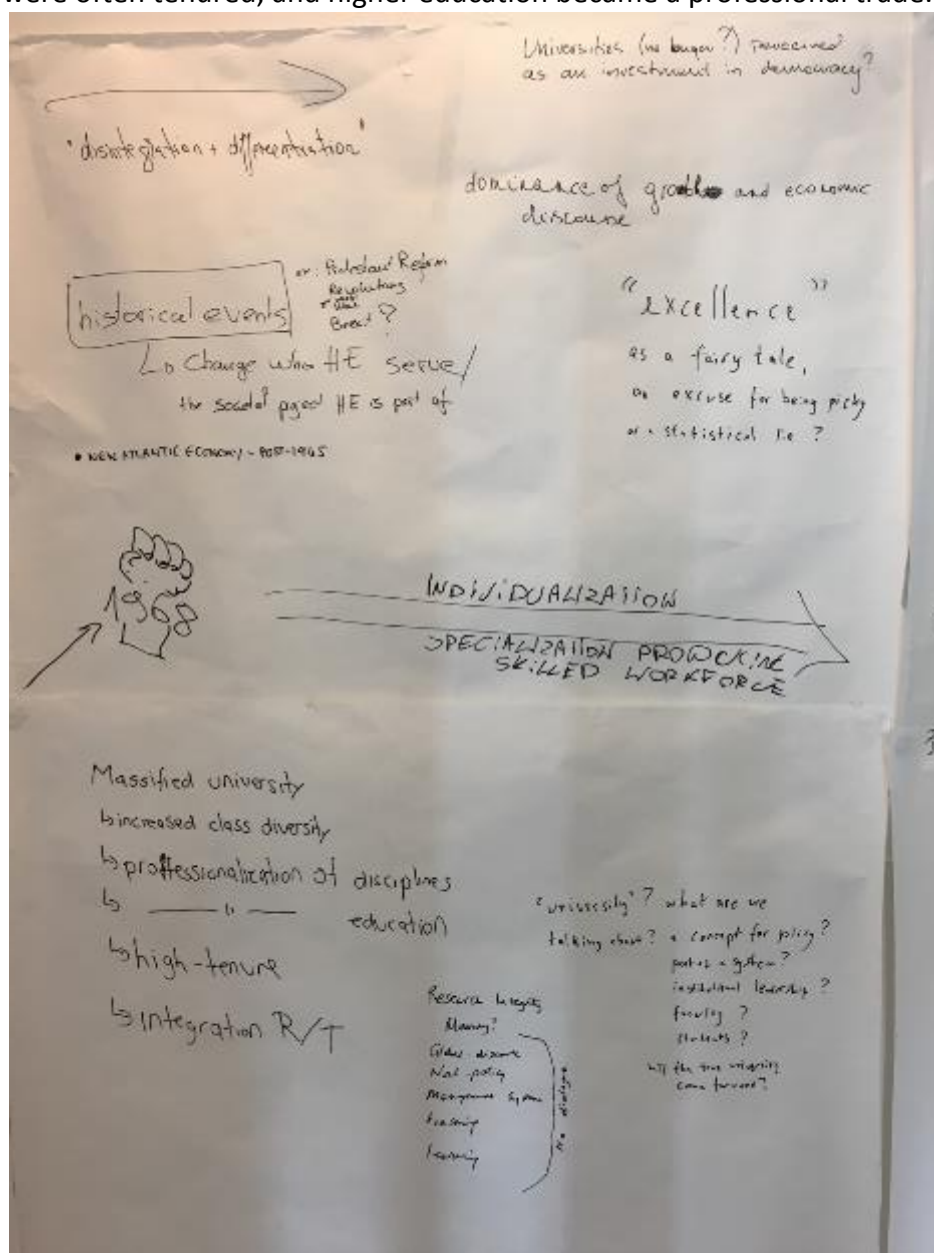 were often tenured, and higher education became a professional trade.
Universities (no longer?) perceived
as an investment in democracy?
"disintegration + differentiation"
dominance of growth and economic
discourse
historical events
or: Protestant Reform
Revolutions
Brexit?
Change who HE serve/
the societal project HE is part of
"excellence"
as a fairy tale,
an excuse for being picky
or a statistical lie ?
• NEW ATLANTIC ECONOMY - POST-1945
1968
INDIVIDUALIZATION
SPECIALIZATION
SKILLED WORKFORCE
Massified university
↳ increased class diversity
↳ proffessionalization of disciplines
↳ —— " —— education
↳ high-tenure
↳ integration R/T
"university"? what are we
talking about? a concept for policy?
part of a system?
institutional leadership?
faculty ?
students ?
will the true university
come forward?
Research Integrity
Global discourse
Natl policy
Management system
teaching
learning
no dialogue